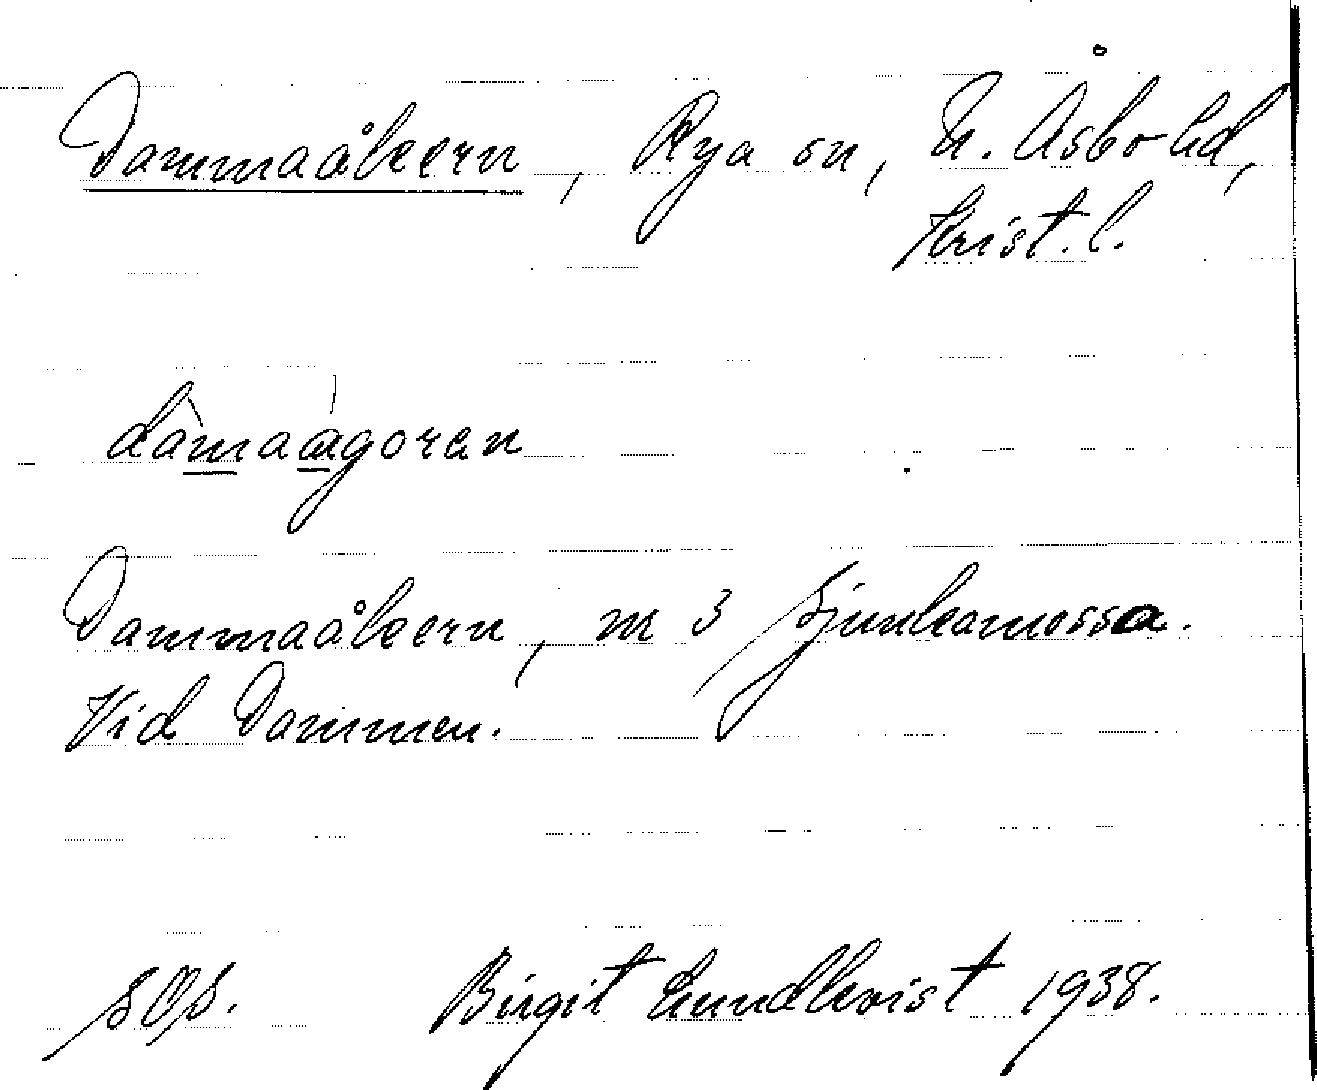 Dammaåkern, Rya sn, N. Åsbo hd,
Krist. l.
dàmaágoran
Dammaåkern, m 3 Sjunkamossa.
Vid Dammen.
Birgit Lundkvist 1938.